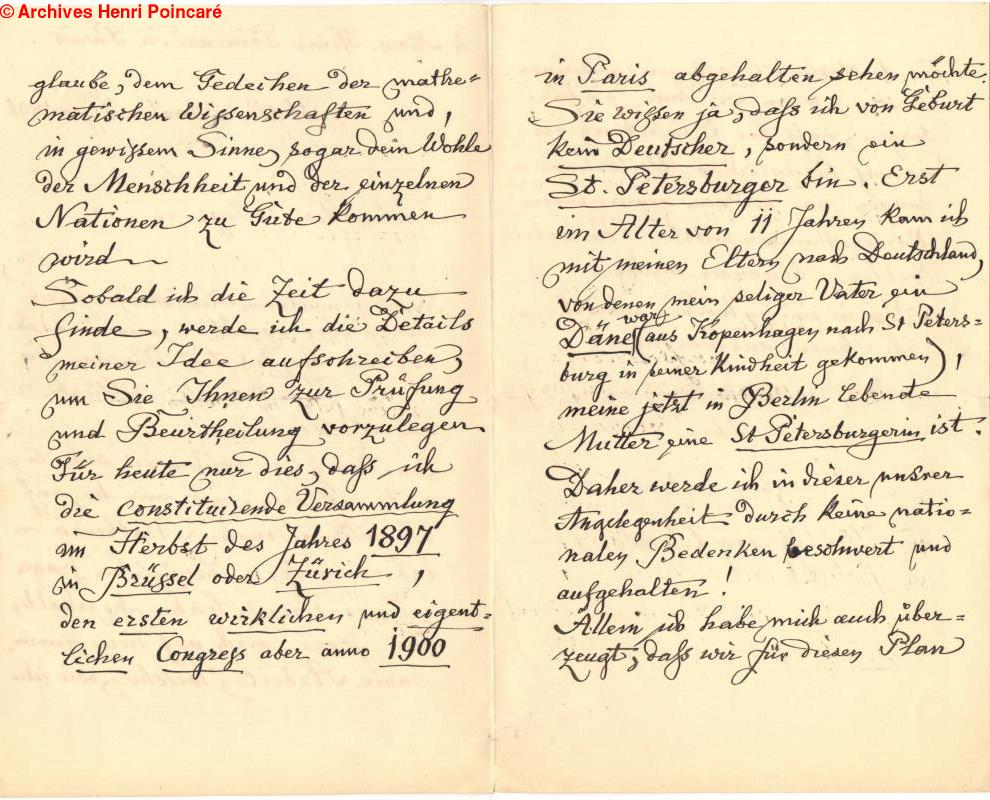 © Archives Henri Poincaré
glaube, dem Gedeihen der mathe=
matischen Wissenschaften und,
in gewissem Sinne, sogar dem Wohle
der Menschheit und der einzelnen
Nationen zu Gute kommen
wird.
Sobald ich die Zeit dazu
finde, werde ich die Details
meiner Idee aufschreiben,
um Sie Ihnen zur Prüfung
und Beurtheilung vorzulegen.
Für heute nur dies, daß ich
die constituirende Versammlung
im Herbst des Jahres 1897
in Brüssel oder Zürich,
den ersten wirklichen und eigent=
lichen Congress aber anno 1900
in Paris abgehalten sehen möchte.
Sie wissen ja, daß ich von Geburt
kein Deutscher, sondern ein
St. Petersburger bin. Erst
im Alter von 11 Jahren kam ich
mit meinen Eltern nach Deutschland,
von denen mein seliger Vater ein
Däne war (aus Kopenhagen nach St Peters=
burg in seiner Kindheit gekommen),
meine jetzt in Berlin lebende
Mutter eine St Petersburgerin ist.
Daher werde ich in dieser unsrer
Angelegenheit durch keine natio=
nalen Bedenken beschwert und
aufgehalten!
Allein ich habe mich auch über=
zeugt, daß wir für diesen Plan